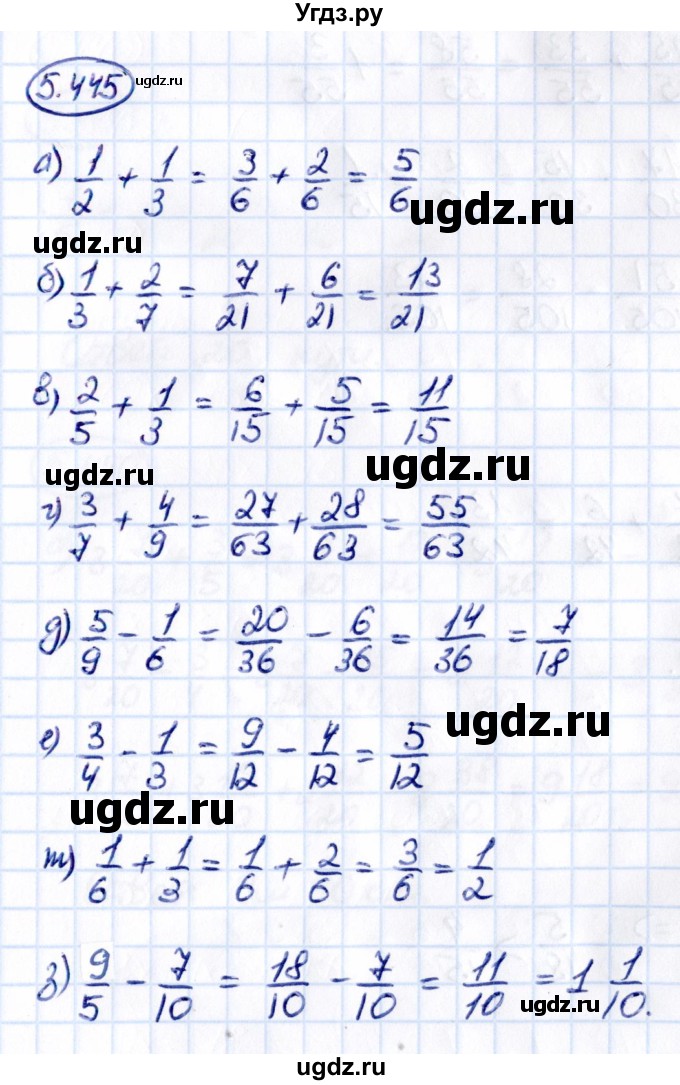 Угдз.ру
5.445 ugdz.ru
а) 1/2 + 1/3 = 3/6 + 2/6 = 5/6
ugdz.ru
ugdz.ru
б) 1/3 + 2/7 = 7/21 + 6/21 = 13/21
в) 2/5 + 1/3 = 6/15 + 5/15 = 11/15
ugdz.ru
ugdz.ru
г) 3/7 + 4/9 = 27/63 + 28/63 = 55/63
д) 5/9 - 1/6 = 20/36 - 6/36 = 14/36 = 7/18
ugdz.ru
е) 3/4 - 1/3 = 9/12 - 4/12 = 5/12
ugdz.ru
ж) 1/6 + 1/3 = 1/6 + 2/6 = 3/6 = 1/2
з) 9/5 - 7/10 = 18/10 - 7/10 = 11/10 = 1 1/10.
ugdz.ru
ugdz.ru